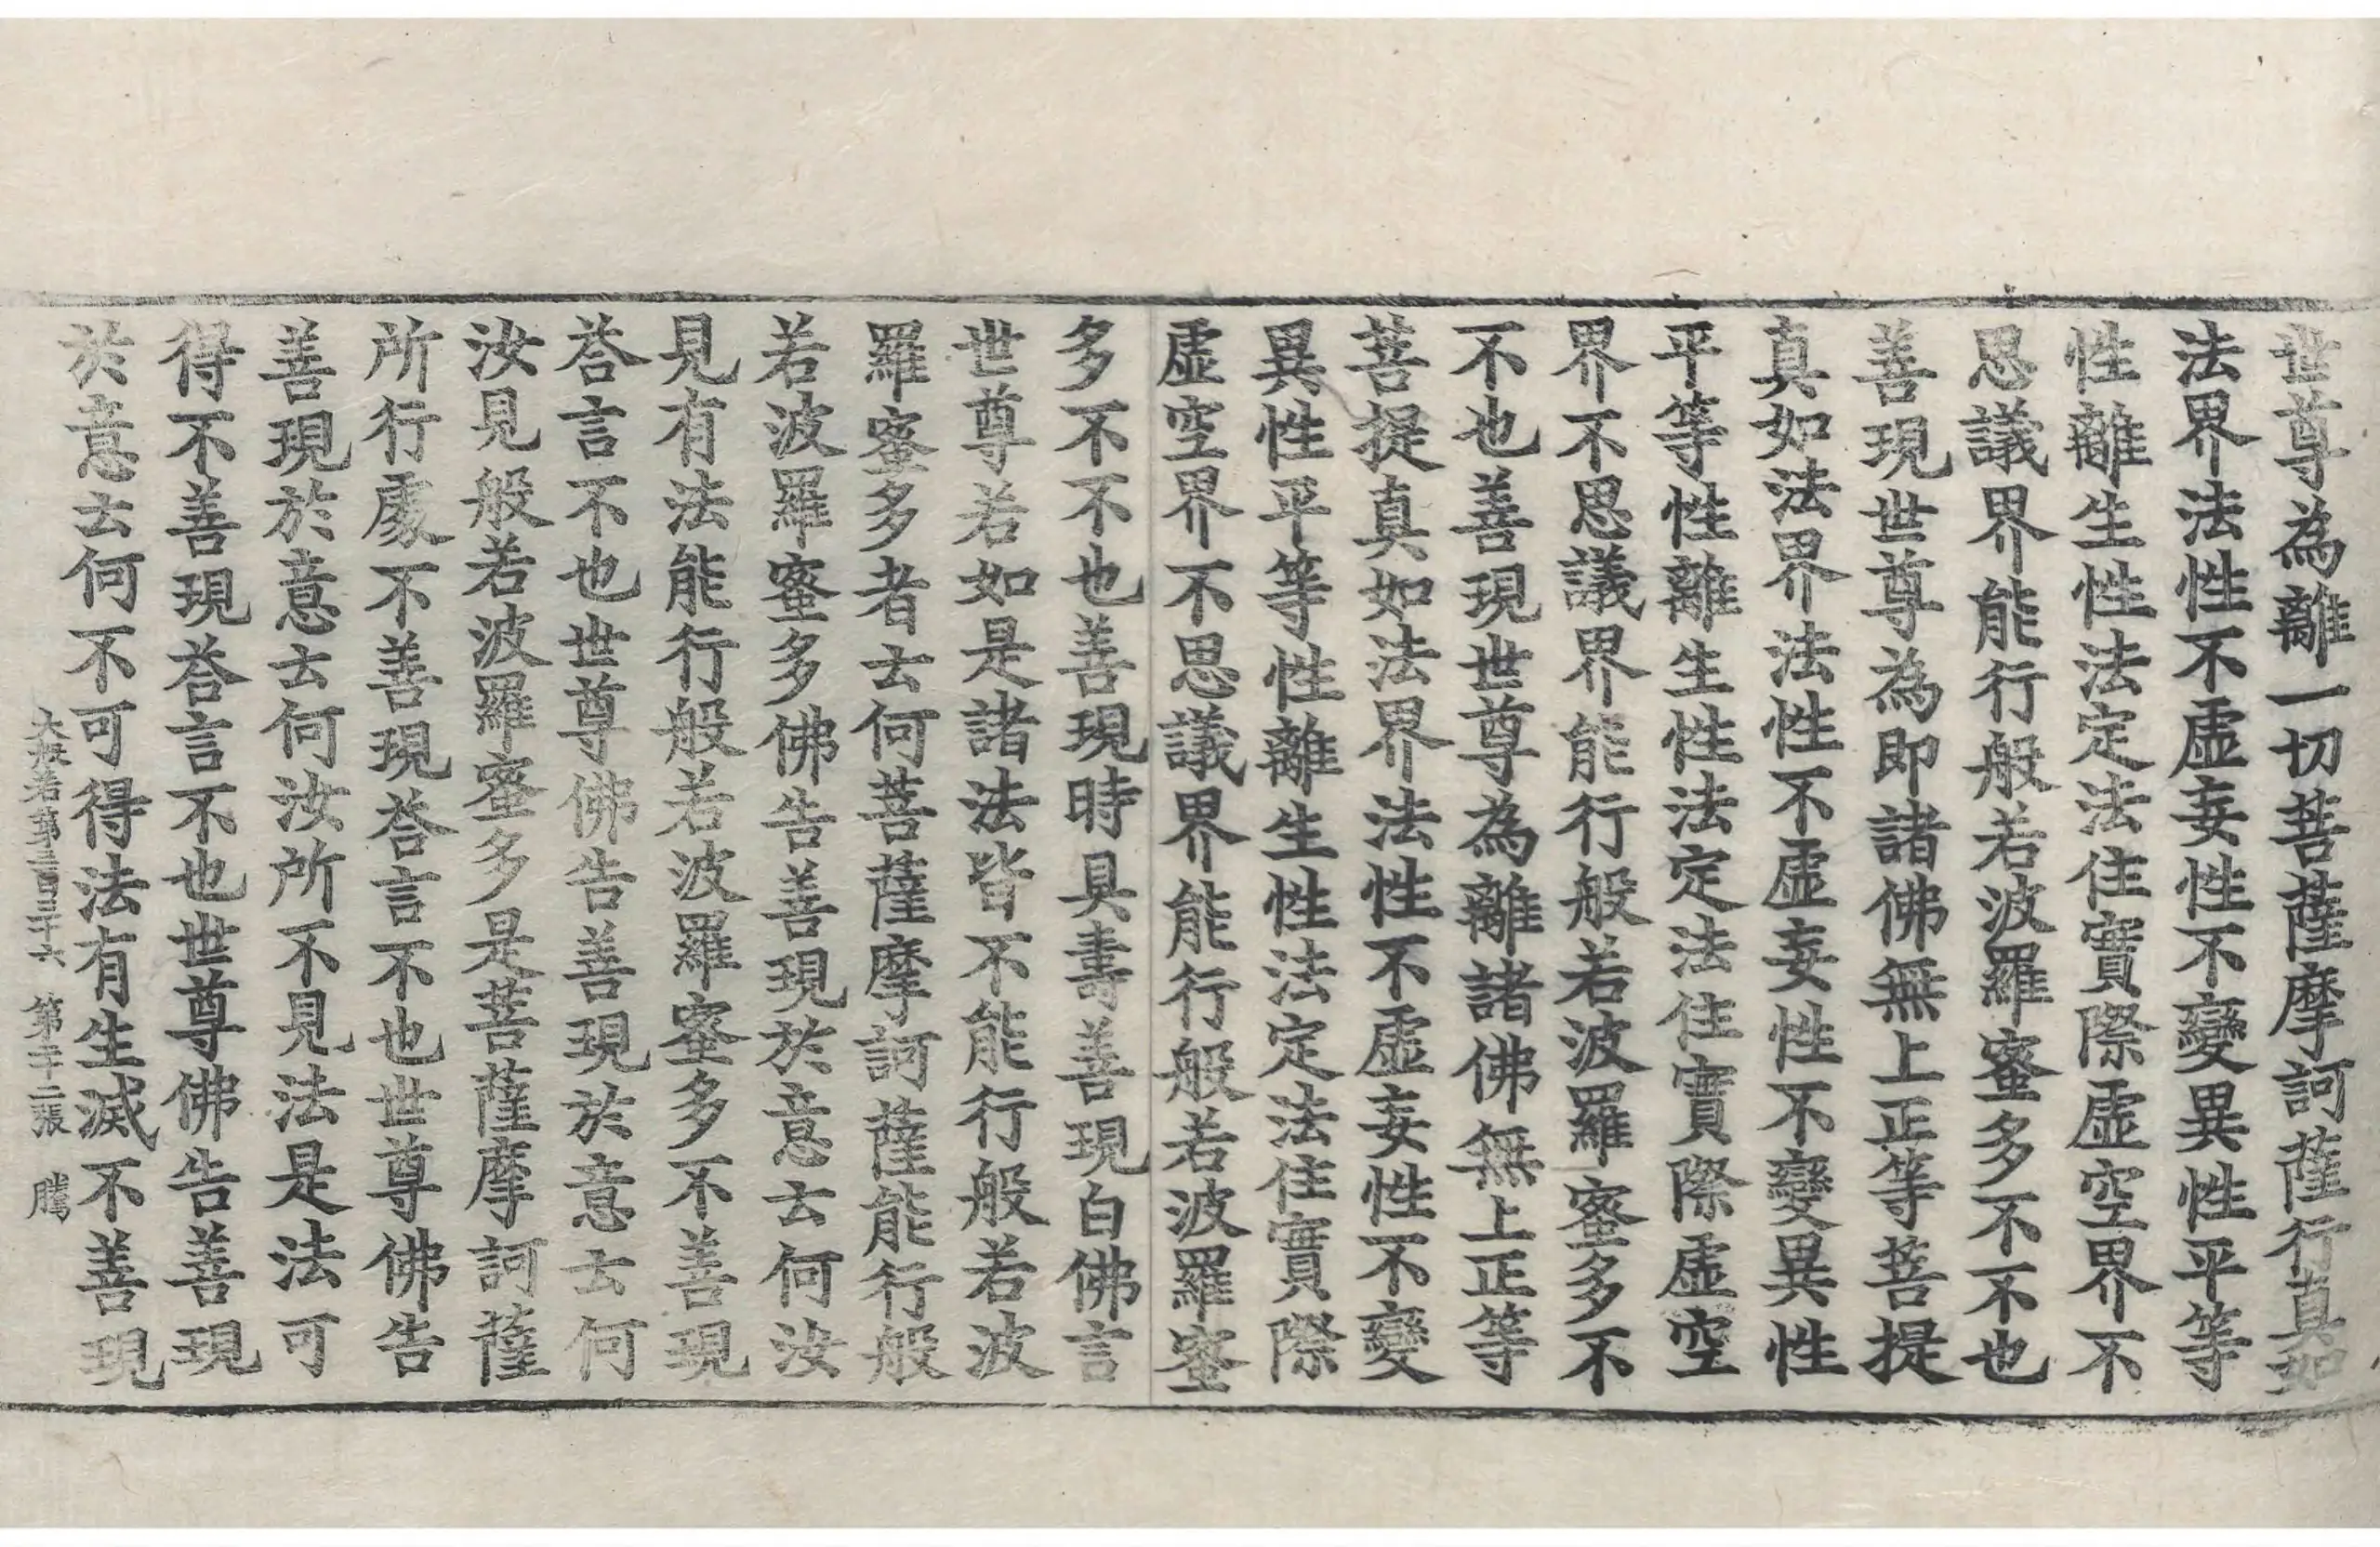 世尊為離一切菩薩摩訶薩行真如
法界法性不虛妄性不變異性平等
性離生性法定法住實際虛空界不
思議界能行般若波羅蜜多不不也
善現世尊為即諸佛無上正等菩提
真如法界法性不虛妄性不變異性
平等性離生性法定法住實際虛空
界不思議界能行般若波羅蜜多不
不也善現世尊為離諸佛無上正等
菩提真如法界法性不虛妄性不變
異性平等性離生性法定法住實際
虛空界不思議界能行般若波羅蜜
多不不也善現時具壽善現白佛言
世尊若如是諸法皆不能行般若波
羅蜜多者云何菩薩摩訶薩能行般
若波羅蜜多佛告善現於意云何汝
見有法能行般若波羅蜜多不善現
荅言不也世尊佛告善現於意云何
汝見般若波羅蜜多是菩薩摩訶薩
所行處不善現荅言不也世尊佛告
善現於意云何汝所不見法是法可
得不善現荅言不也世尊佛告善現
於意云何不可得法有生滅不善現
大般若第三百三十六 第二十二張 騰